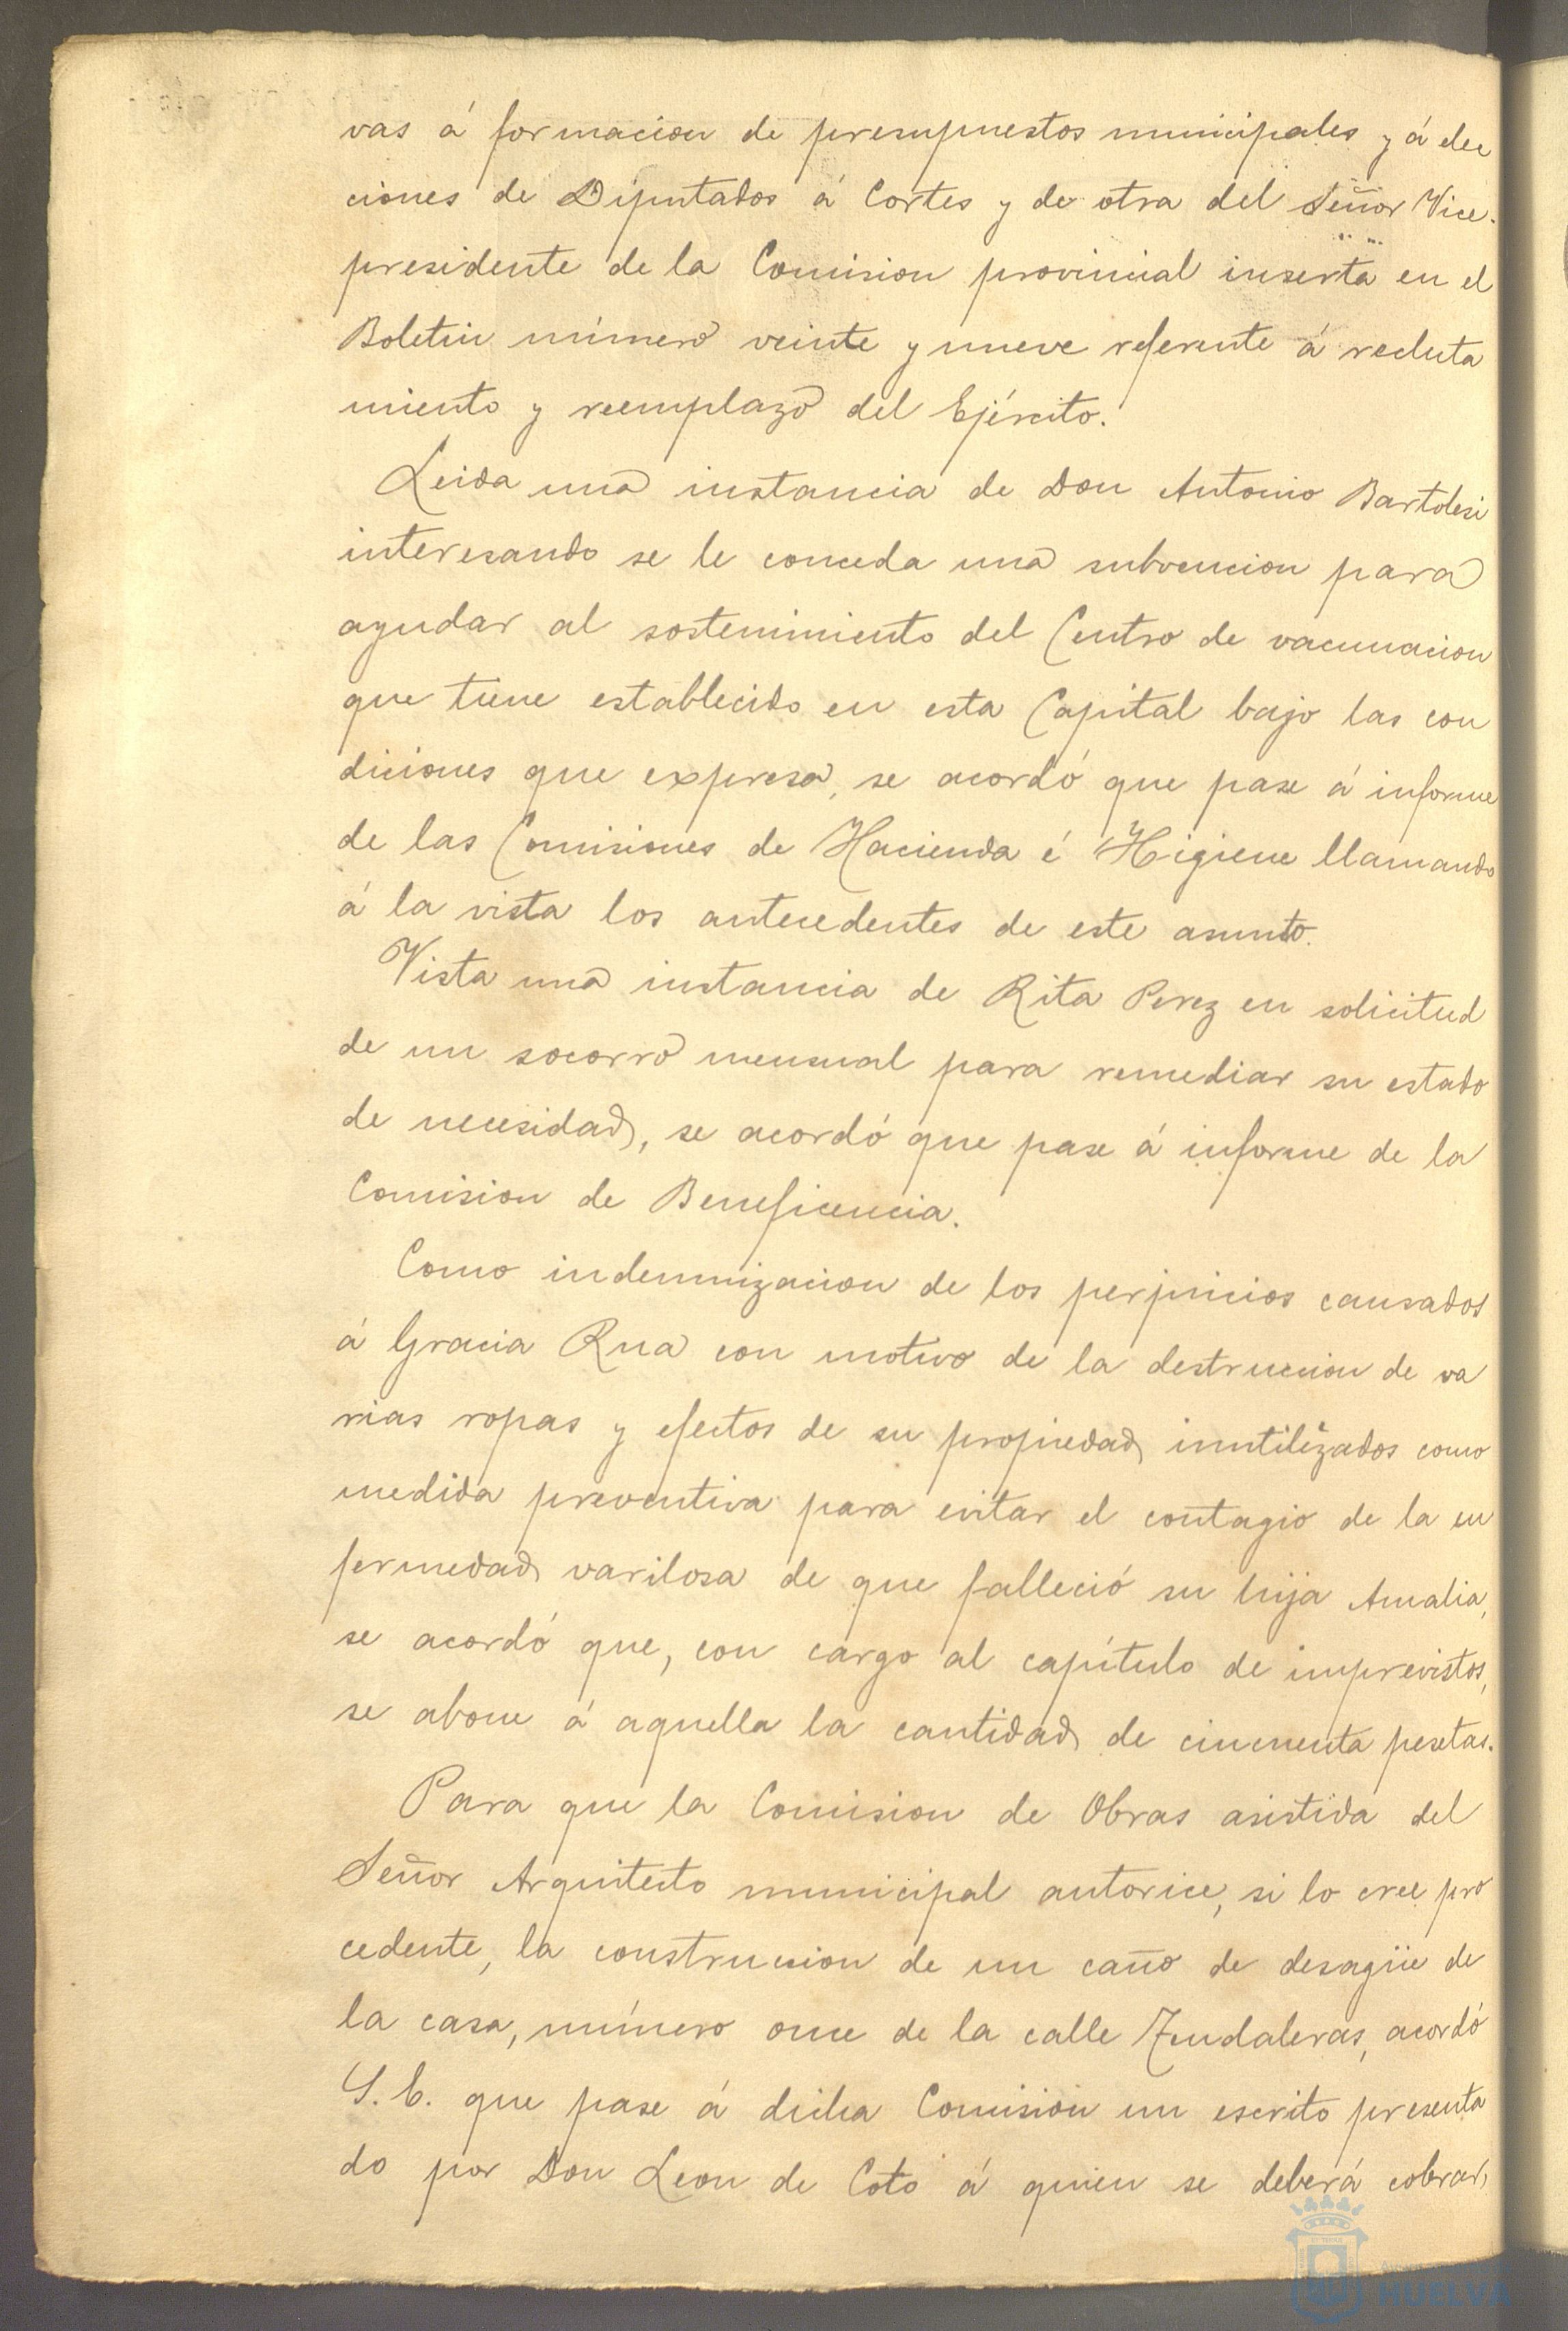 vas á formacion de presupuestos municipales y á elec
ciones de Diputados á Cortes y de otra del Señor Vice-
presidente de la Comision provincial inserta en el
Boletin número veinte y nueve referente á recluta
miento y reemplazo del Ejército.
Leida una instancia de Don Antonio Bartolesi
interesando se le conceda una subvencion para
ayudar al sostenimiento del Centro de vacunacion
que tiene establecido en esta Capital bajo las con
diciones que expresa, se acordó que pase á informe
de las Comisiones de Hacienda é Higiene llamando
á la vista los antecedentes de este asunto.
Vista una instancia de Rita Perez en solicitud
de un socorro mensual para remediar su estado
de necesidad, se acordó que pase á informe de la
Comision de Beneficencia.
Como indemnizacion de los perjuicios causados
á Gracia Rua con motivo de la destruccion de va
rias ropas y efectos de su propiedad inutilizados como
medida preventiva para evitar el contagio de la en
fermedad varilosa de que falleció su hija Amalia,
se acordó que, con cargo al capítulo de imprevistos,
se abone á aquella la cantidad de cincuenta pesetas.
Para que la Comision de Obras asistida del
Señor Arquitecto municipal autorice, si lo cree pro
cedente, la construccion de un caño de desagüe de
la casa, número once de la calle Zendaleras, acordó
S. E. que pase á dicha Comision un escrito presenta
do por Don Leon de Coto á quien se deberá cobrar,
HUELVA